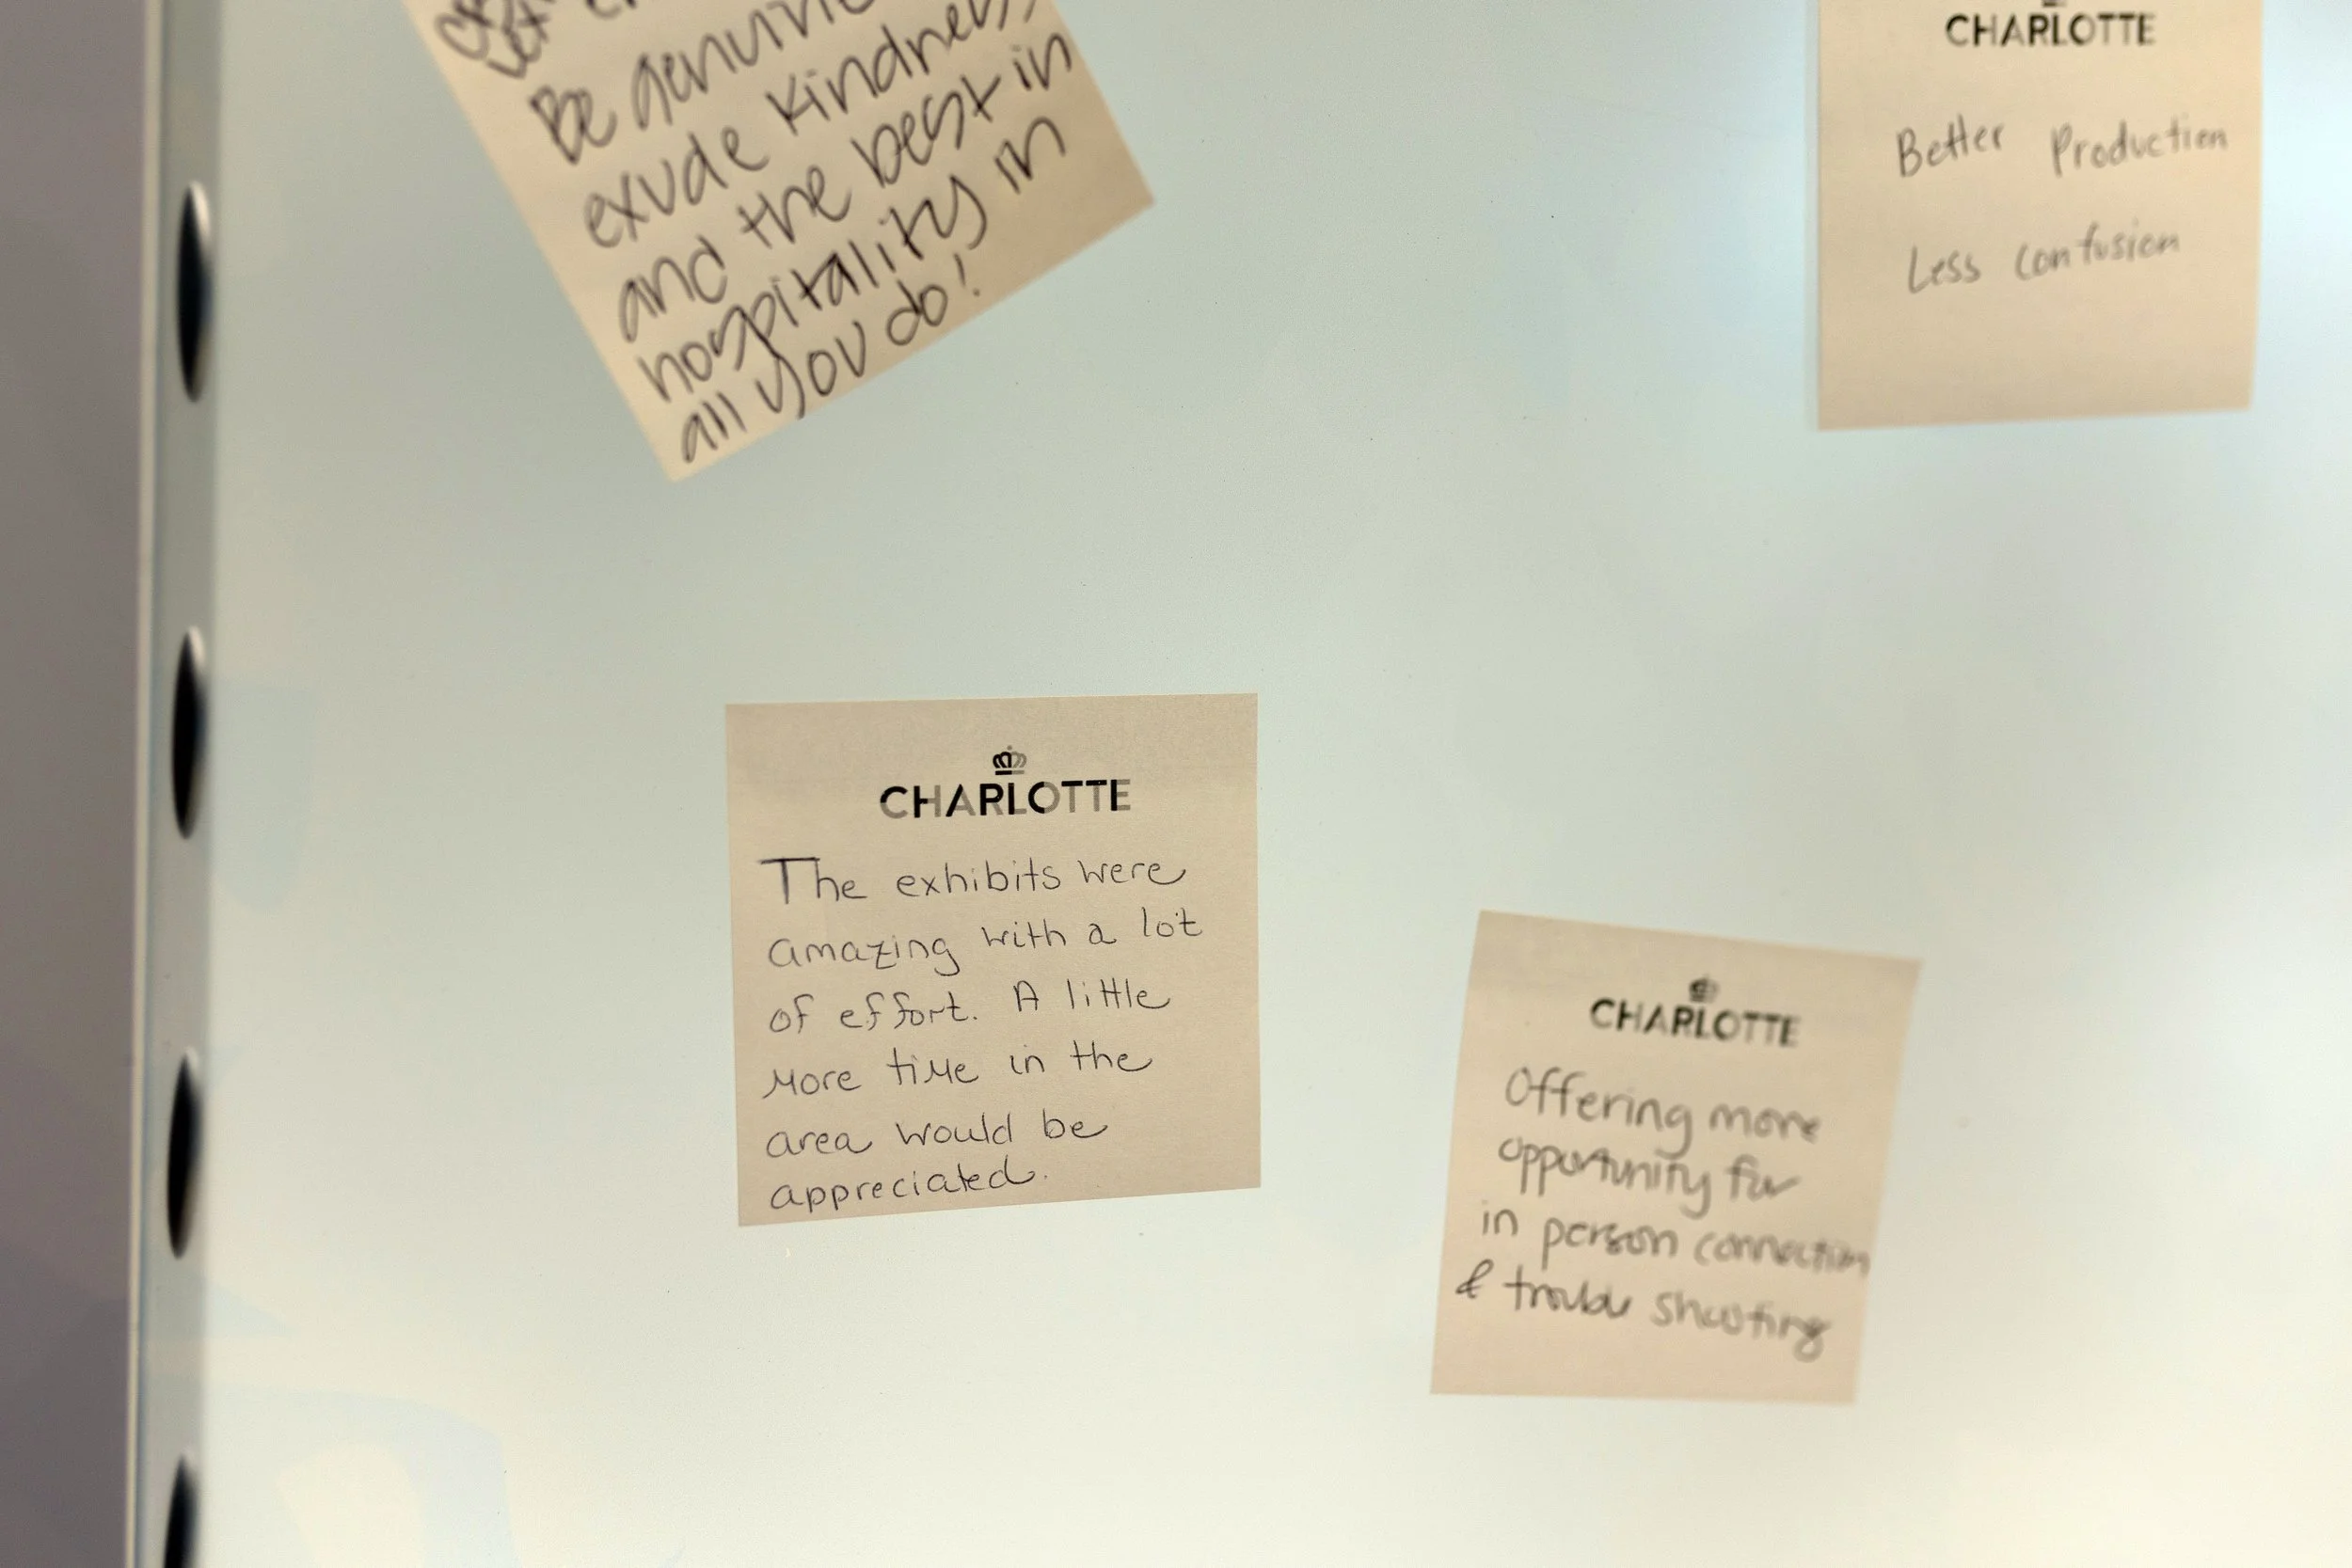 Be genuine
exude kindness,
and the best in
hospitality in
all you do!
CHARLOTTE
Better Production
Less confusion
CHARLOTTE
The exhibits were
amazing with a lot
of effort. A little
more time in the
area would be
appreciated.
CHARLOTTE
Offering more
opportunity for
in person connection
& trouble shooting